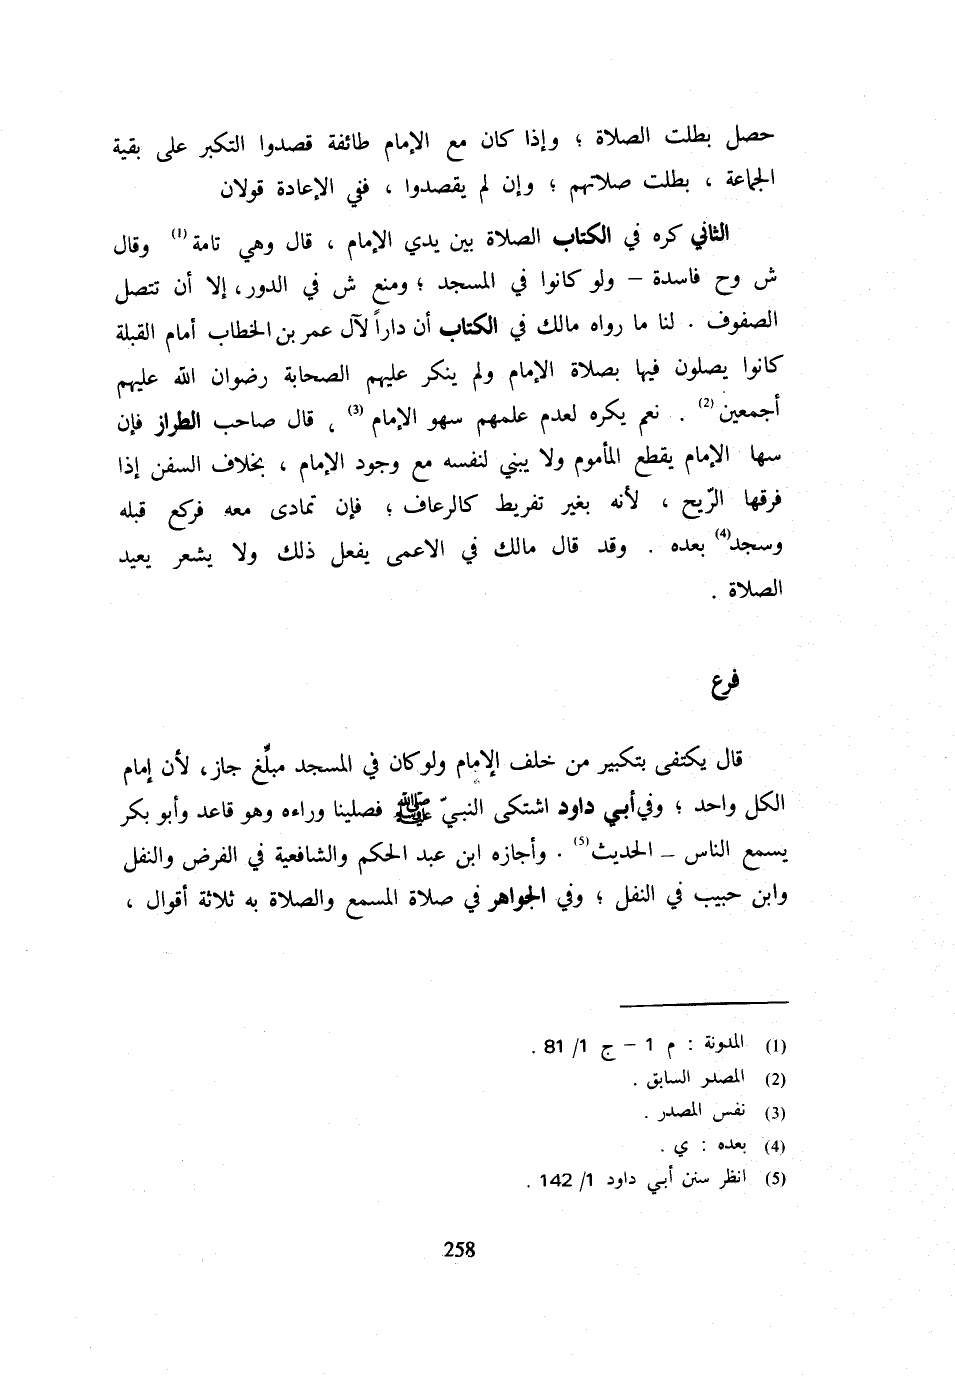 حصل بطلت الصلاة ؛ وإذا كان مع الإمام طائفة قصدوا التكبر على بقية
الجماعة ، بطلت صلاتهم ؛ وإن لم يقصدوا ، ففي الإعادة قولان
الثاني كره في الكتاب الصلاة بين يدي الإمام ، قال وهي تامة (1) وقال
ش وح فاسدة – ولو كانوا في المسجد ؛ ومنع ش في الدور، إلا أن تتصل
الصفوف . لنا ما رواه مالك في الكتاب أن داراً لآل عمر بن الخطاب أمام القبلة
كانوا يصلون فيها بصلاة الإمام ولم ينكر عليهم الصحابة رضوان الله عليهم
أجمعين (2) . نعم يكره لعدم علمهم سهو الإمام (3) ، قال صاحب الطراز فإن
سها الإمام يقطع المأموم ولا يبني لنفسه مع وجود الإمام ، بخلاف السفن إذا
فرقها الرّيح ، لأنه بغير تفريط كالرعاف ؛ فإن تمادى معه فركع قبله
وسجد (4) بعده . وقد قال مالك في الاعمى يفعل ذلك ولا يشعر يعيد
الصلاة .
فرع
قال يكتفى بتكبير من خلف الإمام ولو كان في المسجد مبلّغ جاز، لأن إمام
الكل واحد ؛ وفي أبي داود اشتكى النبيّ ﷺ فصلينا وراءه وهو قاعد وأبو بكر
يسمع الناس – الحديث (5) . وأجازه ابن عبد الحكم والشافعية في الفرض والنفل
وابن حبيب في النفل ؛ وفي الجواهر في صلاة المسمع والصلاة به ثلاثة أقوال ،
(1) المدونة : م 1 – ج 1/ 81 .
(2) المصدر السابق .
(3) نفس المصدر .
(4) بعده : ي .
(5) انظر سنن أبي داود 1/ 142 .
258